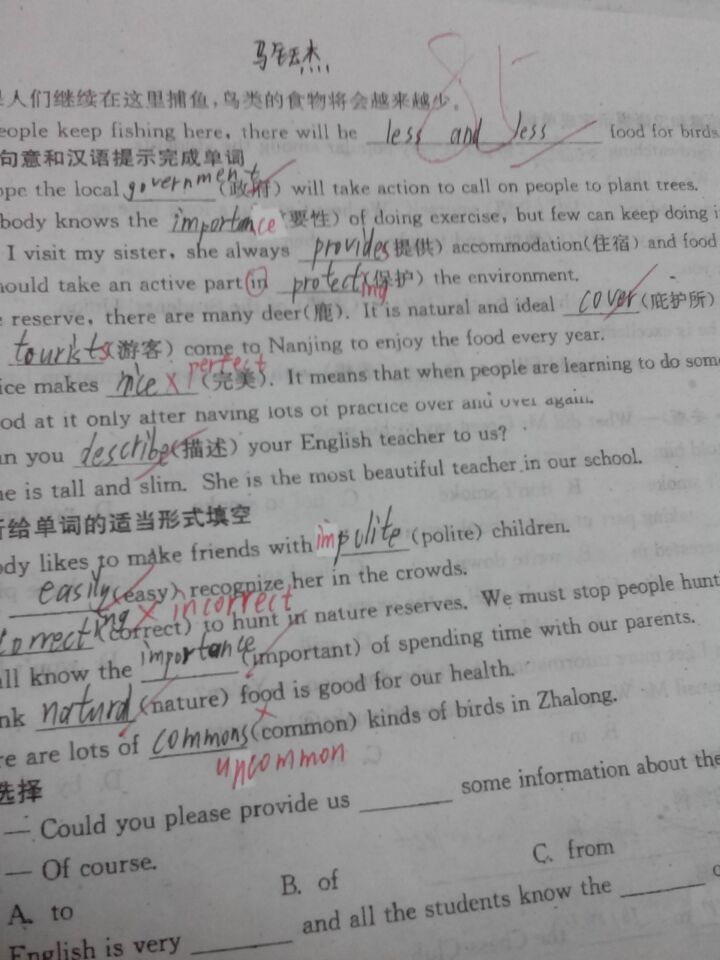 85
人们继续在这里捕鱼,鸟类的食物将会越来越少。
eople keep fishing here, there will be less and less food for birds
句意和汉语提示完成单词
ope the local government (政府) will take action to call on people to plant trees.
body knows the importance (要性) of doing exercise, but few can keep doing i
I visit my sister, she always provides 提供) accommodation(住宿) and food
hould take an active part in protect ing (保护) the environment.
e reserve, there are many deer(鹿). It is natural and ideal cover (庇护所)
tourists (游客) come to Nanjing to enjoy the food every year.
ice makes nice × perfect (完美). It means that when people are learning to do som
od at it only after having lots of practice over and over again.
an you describe (描述) your English teacher to us?
he is tall and slim. She is the most beautiful teacher in our school.
给单词的适当形式填空
ody likes to make friends with impolite (polite) children.
easily (easy) recognize her in the crowds.
correcting × incorrect (correct) to hunt in nature reserves. We must stop people hunti
all know the importance (important) of spending time with our parents.
nk natural (nature) food is good for our health.
re are lots of commons × (common) kinds of birds in Zhalong.
uncommon
选择
— Could you please provide us ______ some information about the
— Of course.
A. to B. of C. from
English is very ______ and all the students know the ______ o